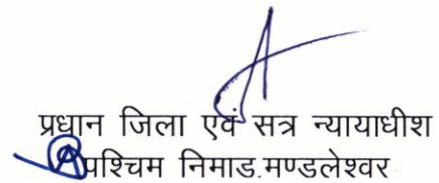 प्रधान जिला एवं सत्र न्यायाधीश
पश्चिम निमाड.मण्डलेश्वर